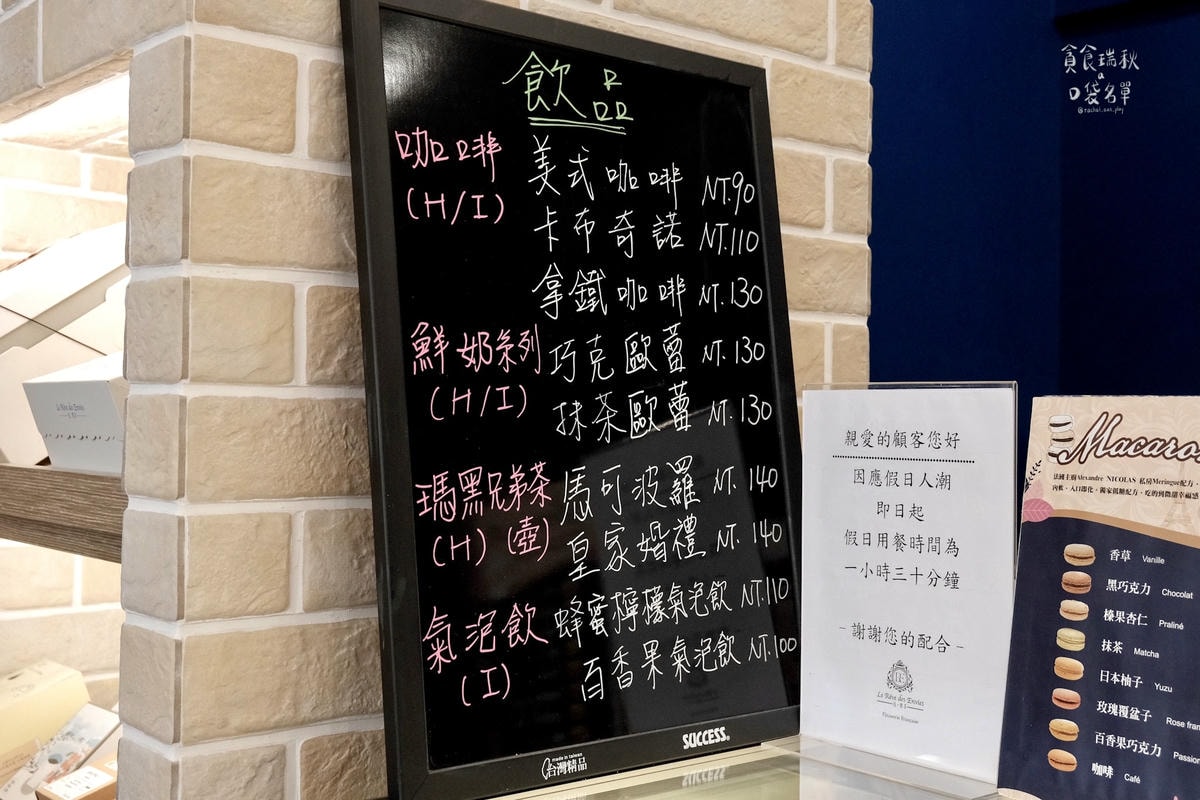 飲品
咖啡
(H/I)
美式咖啡 NT.90
卡布奇諾 NT.110
拿鐵咖啡 NT.130
鮮奶系列
(H/I)
巧克歐蕾 NT.130
抹茶歐蕾 NT.130
瑪黑兄弟茶
(H)(壺)
馬可波羅 NT.140
皇家婚禮 NT.140
氣泡飲
(I)
蜂蜜檸檬氣泡飲 NT.110
百香果氣泡飲 NT.100
SUCCESS
made in taiwan
台灣精品
親愛的顧客您好
因應假日人潮
即日起
假日用餐時間為
一小時三十分鐘
- 謝謝您的配合 -
Le Rêve des Envies
Pâtisserie Française
Macaro
法國主廚Alexandre NICOLAS 私房Meringue配方,
內軟、入口即化,獨家低糖配方,吃的到微甜幸福感
香草 Vanille
黑巧克力 Chocolat
榛果杏仁 Praliné
抹茶 Matcha
日本柚子 Yuzu
玫瑰覆盆子 Rose fram
百香果巧克力 Passion
咖啡 Café
貪食瑞秋
a
口袋名單
@rachel_eat_play
Le Rêve des Envies